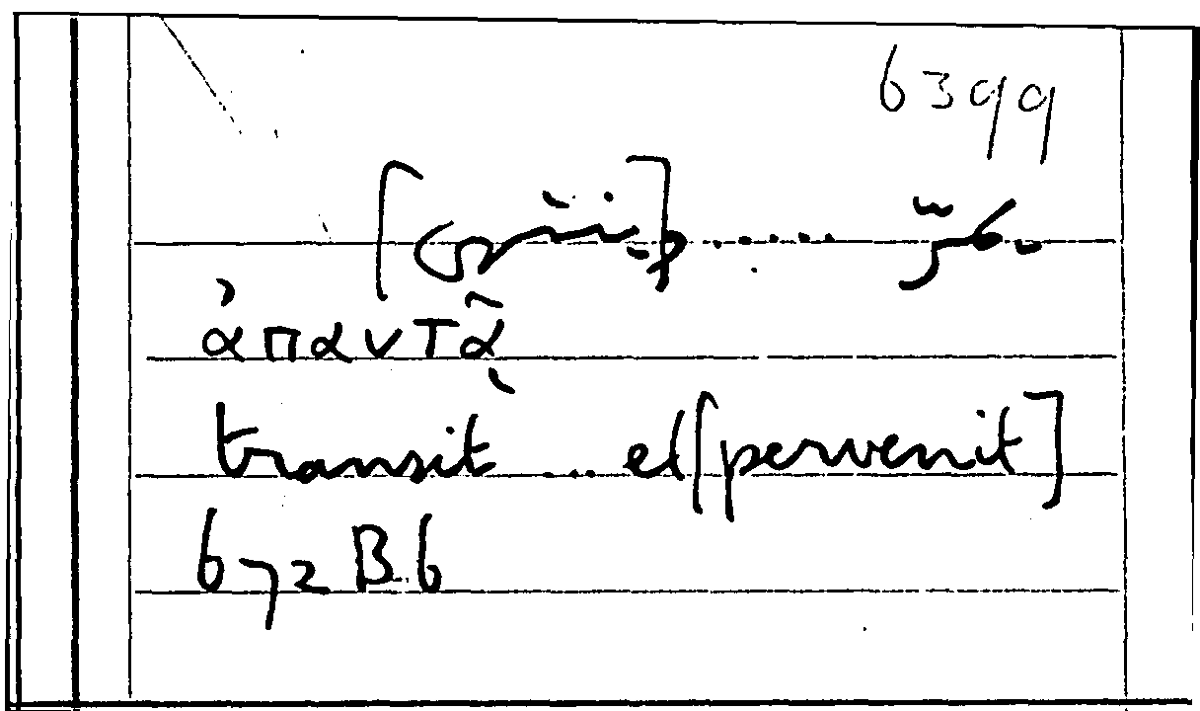 6399
ἀπαντᾷ
transit ... et [pervenit]
672 B.6